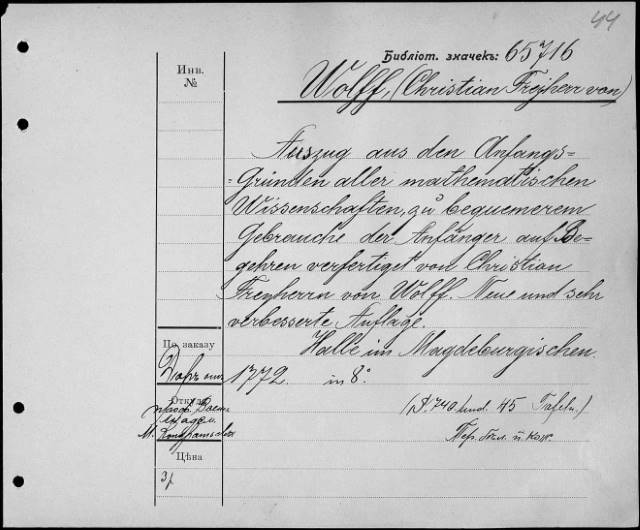 44
Библіот. значекъ: 65716
Инв.
№
Wolff, (Christian Freiherr von)
Auszug aus den Anfangs=
=Gründen aller mathematischen
Wissenschaften, zu bequemerem
Gebrauche der Anfänger auf Be-
gehren verfertiget von Christian
Freyherrn von Wolff. Neue und sehr
verbesserte Auflage.
Halle im Magdeburgischen.
По заказу
Даръ отъ
1772. in 8°.
Откуда
проф. Воен.
Академ.
М.
(S. 740 und 45 Tafeln.)
Пер. бѣл. п. кож.
Цѣна
3р